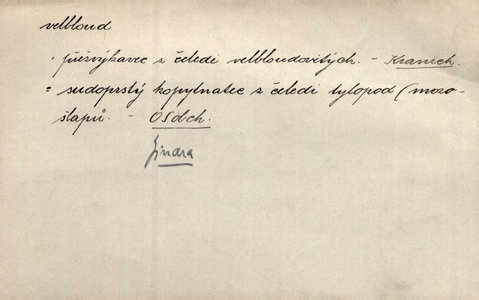 velbloud
· přežvýkavec z čeledi velbloudovitých. - Kranich.
= sudoprstý kopytnatec z čeledi tylopod (mozo-
šlapů. - OSdch.
Jindra